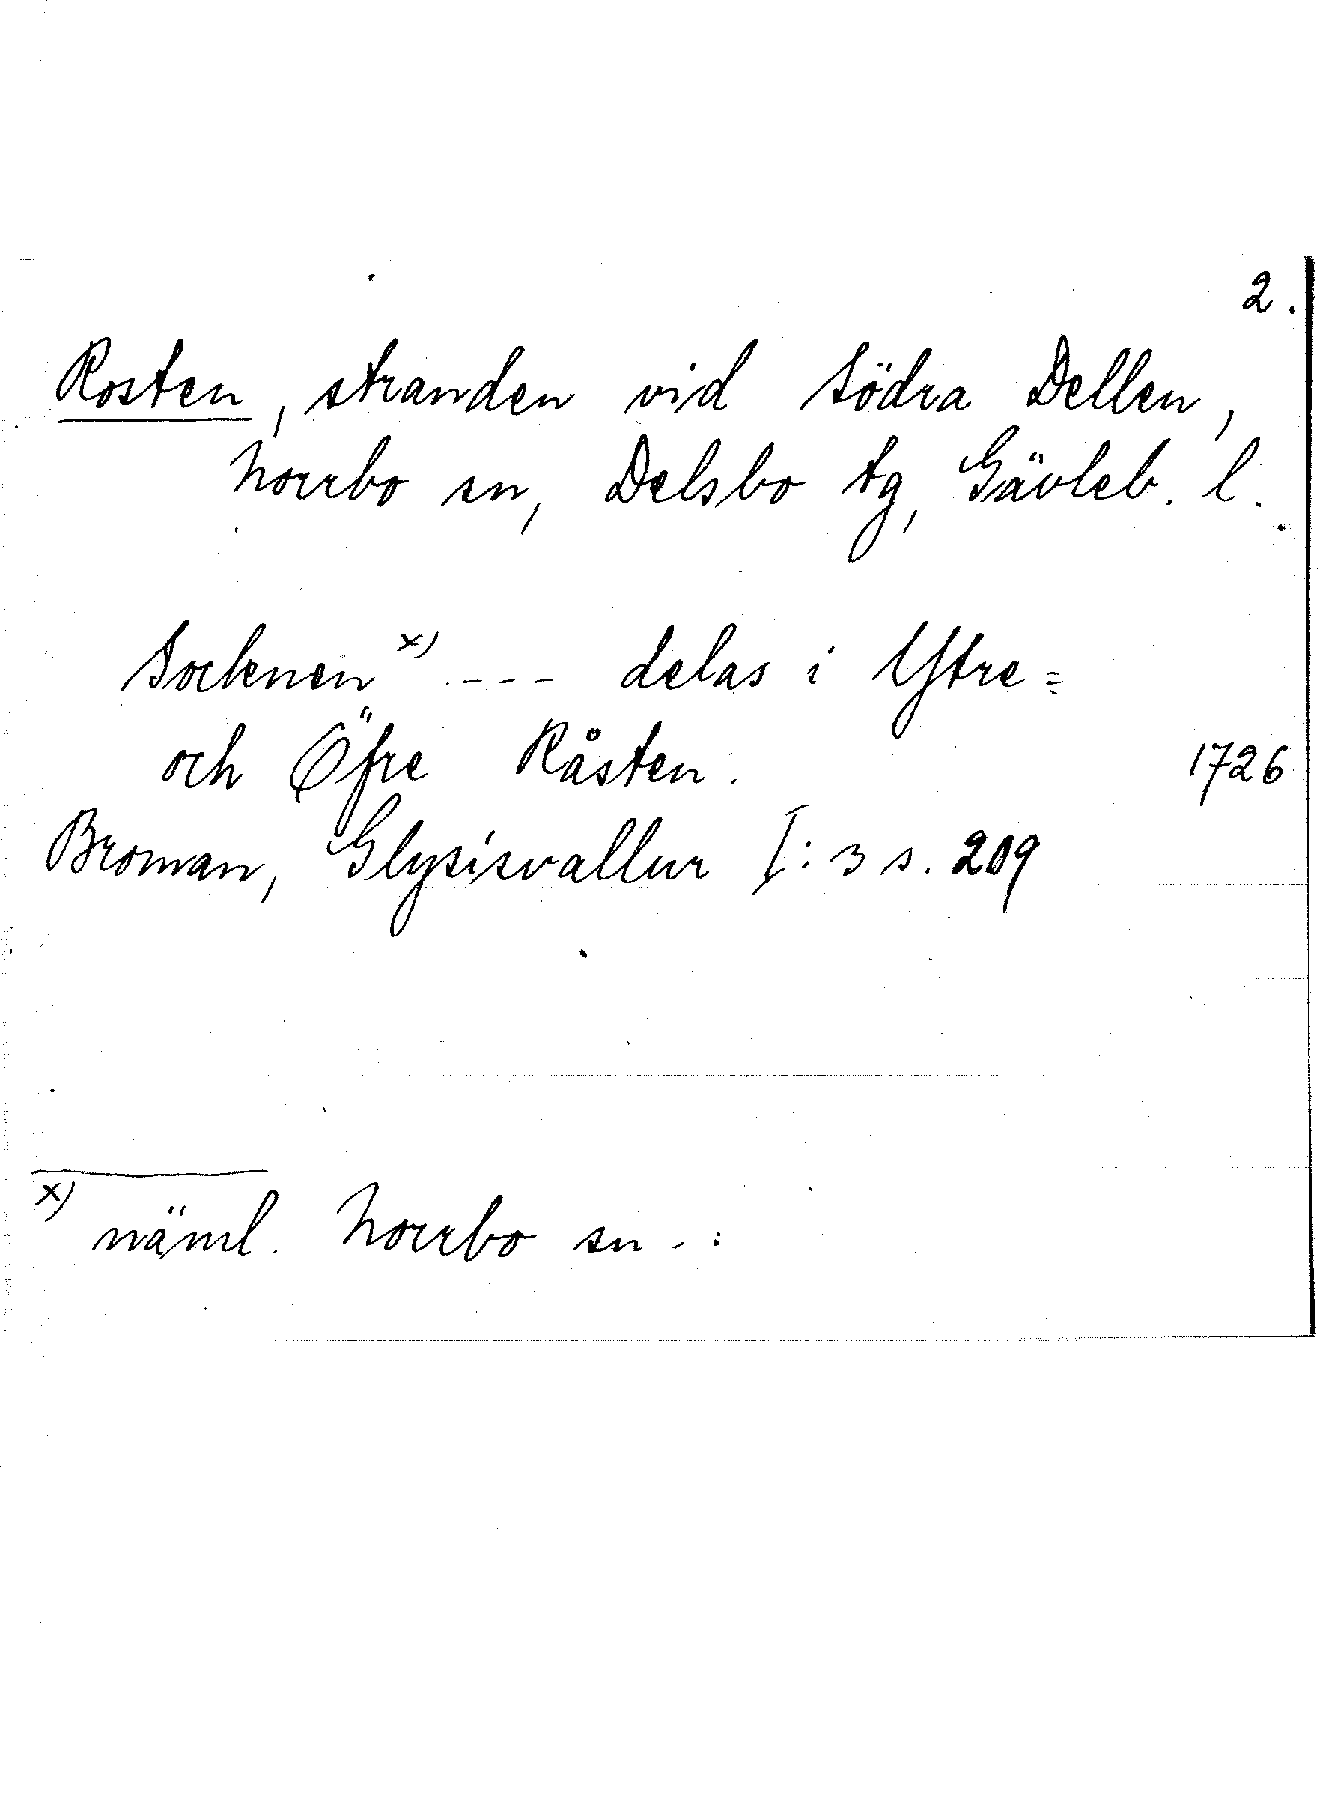 2.
Rosten, stranden vid Södra Dellen,
Norrbo sn, Delsbo tg, Gävleb. l.
Socknen x) ---- delas i Ytre=
och Öfre Råsten. 1726
Broman, Glysisvallur I:3 s. 209
x) näml. Norrbo sn.